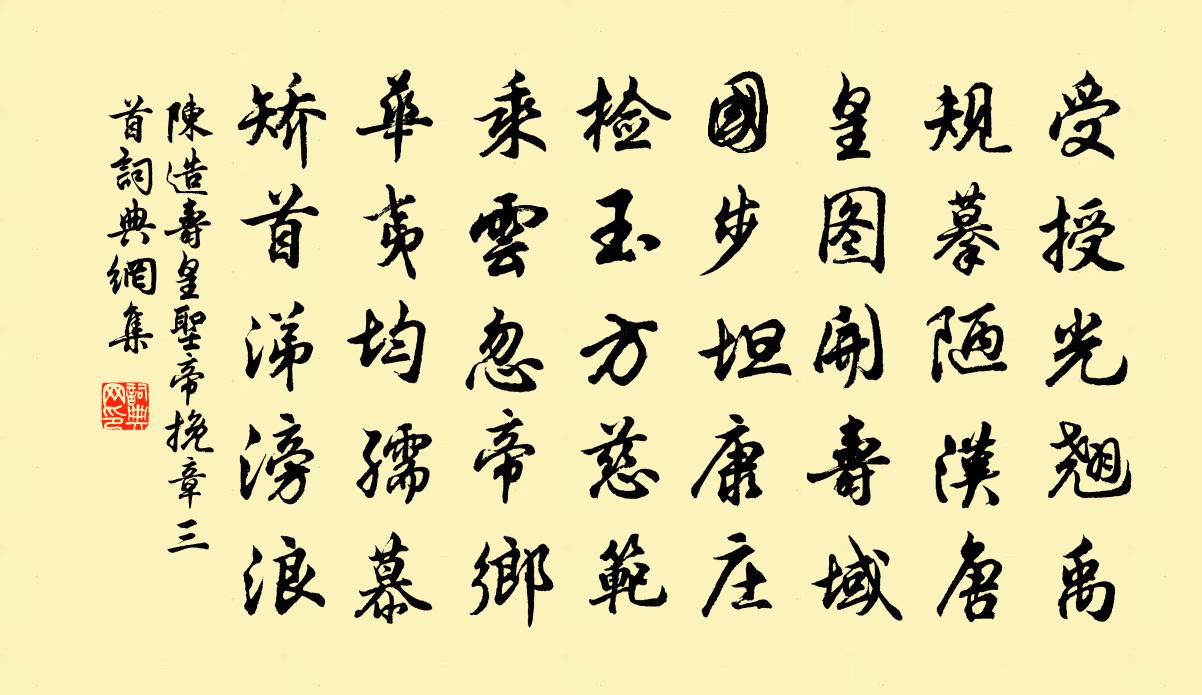 受授光翘禹
规摹陋漢唐
皇图開壽域
國步坦康庄
检玉方慈範
乘雲忽帝鄉
華夷均孺慕
矫首涕滂浪
陳造壽皇聖帝挽章三
首詞典網集
詞典
网印